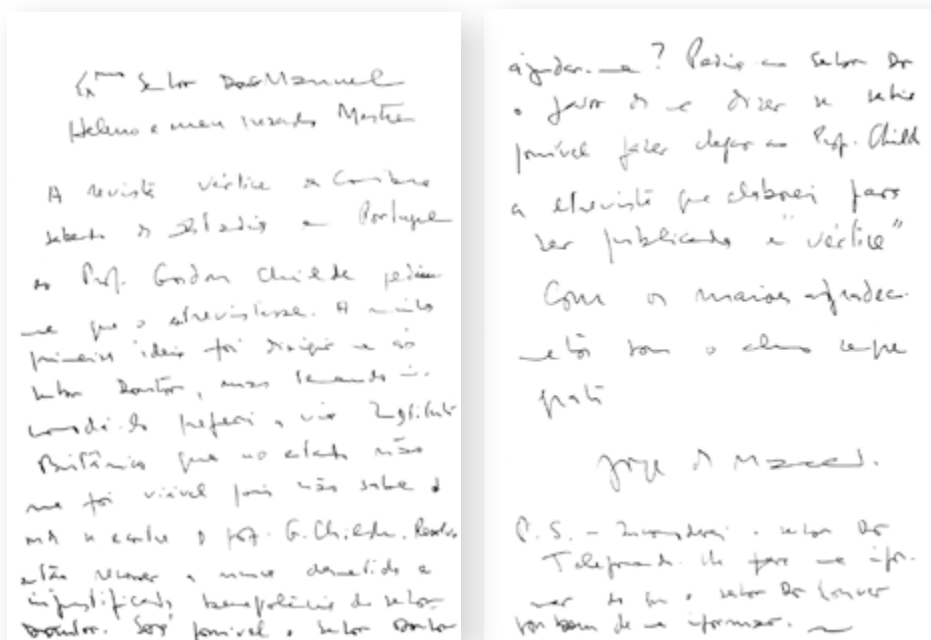 Exmo Senhor Doutor Manuel
Heleno e meu prezado Mestre
A revista vértice de Coimbra
sabendo da estadia em Portugal
do Prof. Gordon Childe pediu
me que o entrevistasse. A minha
primeira ideia foi dirigir me ao
senhor Doutor, mas temendo in-
comodá-lo preferi a via Instituto
Britânico que no entanto não
me foi viável pois não sabe
se encontra o prof. G. Childe. Resolvo
então recorrer a nunca desmentida e
injustificada benevolência do senhor
Doutor. Será possível o senhor Doutor
ajudar-me? Pedia ao senhor Dr
o favor de me dizer se seria
possível fazer chegar ao Prof. Childe
a entrevista que elaborei para
ser publicada em "vértice"
Com os maiores agradeci-
mentos sou o aluno sempre
grato
Jorge de Macedo.
P.S. - Incomodarei o senhor Dr
Telefonando-lhe para me infor-
mar do que o senhor Dr houver
por bem de me informar.